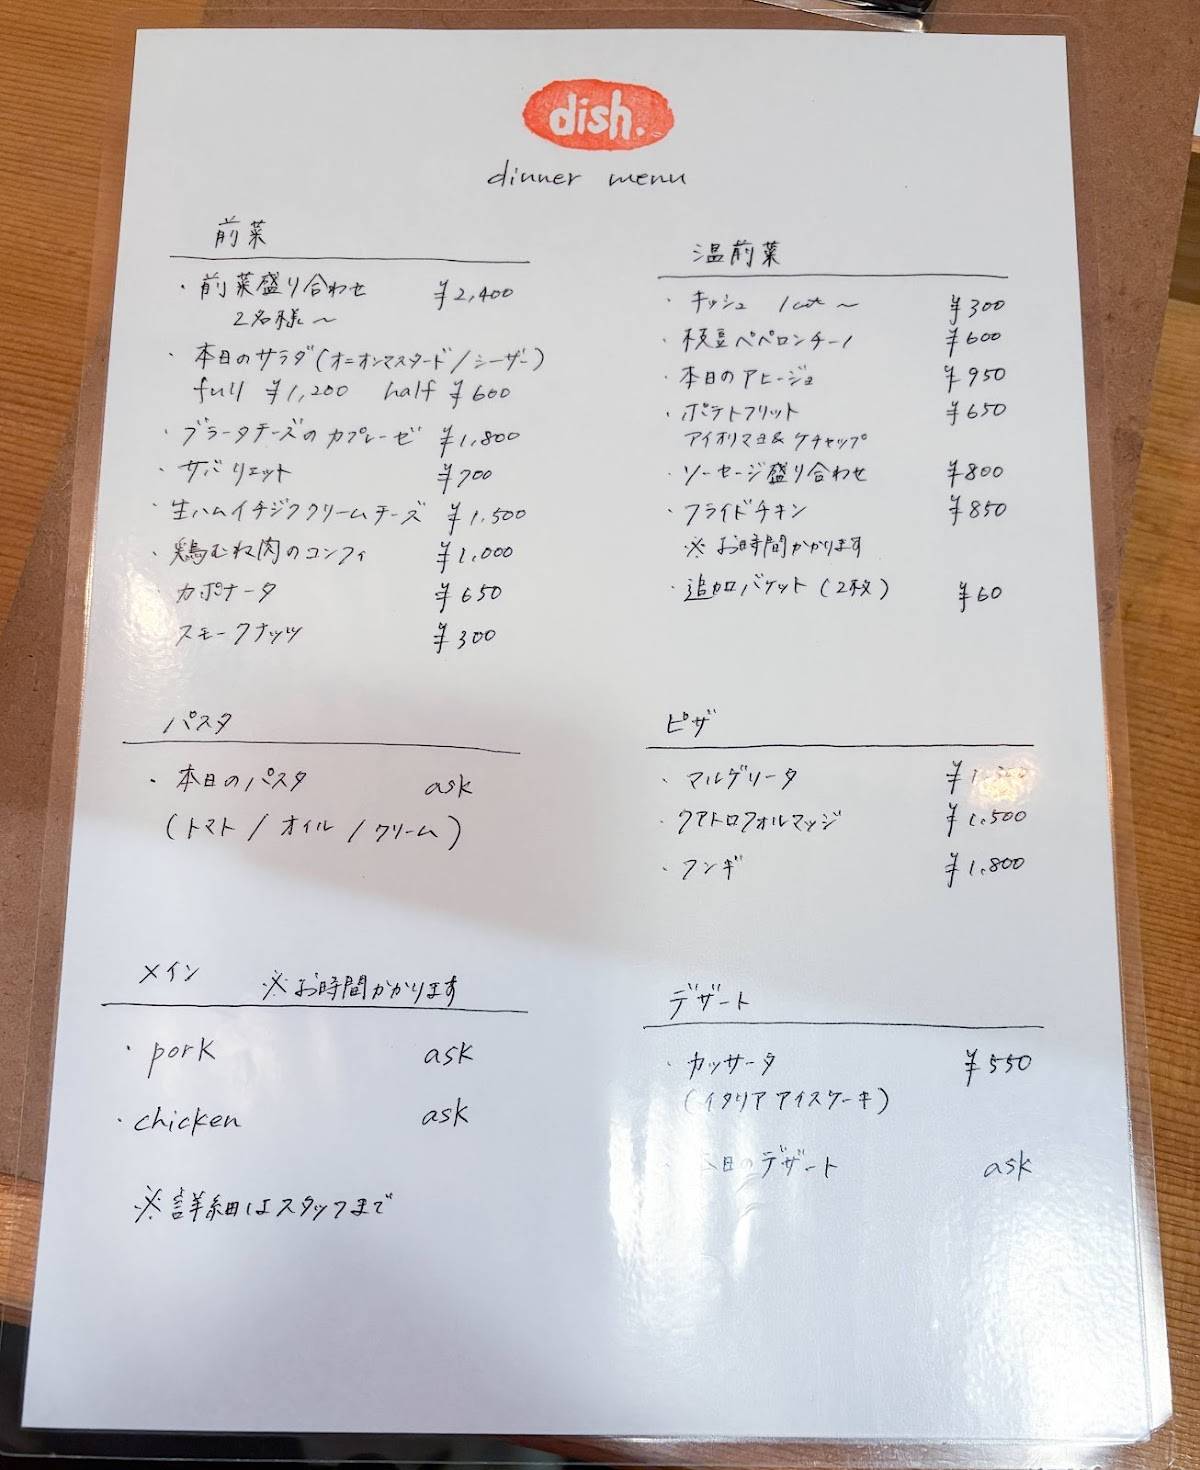 dish.
dinner menu
前菜
・前菜盛り合わせ ¥2,400
2名様〜
・本日のサラダ(オニオンマスタード/シーザー)
full ¥1,200 half ¥600
・ブラータチーズのカプレーゼ ¥1,800
・サバリエット ¥700
・生ハムイチジククリームチーズ ¥1,500
・鶏むね肉のコンフィ ¥1,000
・カポナータ ¥650
スモークナッツ ¥300
温前菜
・キッシュ 1cut〜 ¥300
・枝豆ペペロンチーノ ¥600
・本日のアヒージョ ¥950
・ポテトフリット ¥650
アイオリマヨ&ケチャップ
・ソーセージ盛り合わせ ¥800
・フライドチキン ¥850
※お時間かかります
・追加バケット(2枚) ¥60
パスタ
・本日のパスタ ask
(トマト/オイル/クリーム)
ピザ
・マルゲリータ
・クアトロフォルマッジ ¥1,500
・フンギ ¥1,800
メイン ※お時間かかります
・pork ask
・chicken ask
※詳細はスタッフまで
デザート
・カッサータ ¥550
(イタリアアイスケーキ)
本日のデザート ask